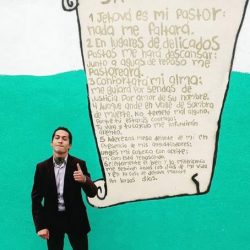 1 Jehová es mi pastor;
nada me faltará.
2 En lugares de delicados
Pastos me hará descansar;
Junto a aguas de reposo me
Pastoreará.
3 Confortará mi alma;
me guiará por sendas de
Justicia Por amor de su nombre.
4 Aunque ande en valle de sombra
de muerte, No temeré mal alguno,
Porque tú estarás conmigo;
tu vara y tu cayado me infundirán
aliento.
5 Aderezas mesa delante de mí en
Presencia de mis angustiadores;
unges mi cabeza con aceite;
mi copa está rebosando.
el bien y la misericordia
me seguirán todos los días de mi vida
largos días.